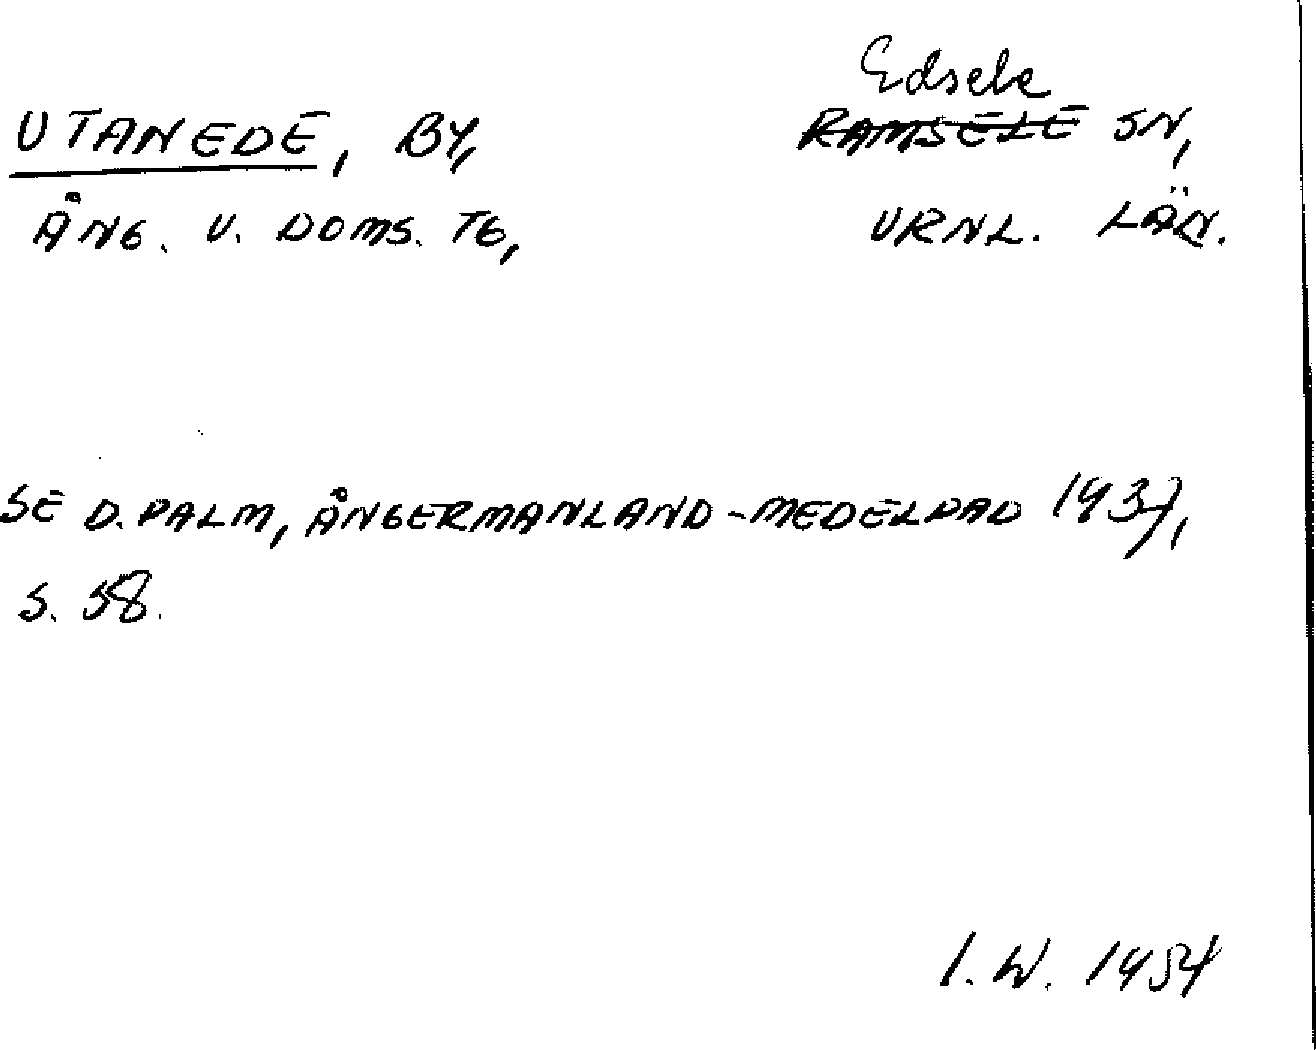 Edsele
UTANEDE, BY, RAMSELE SN,
ÅNG. V. DOMS. TG, VRNL. LÄN.
SE D. PALM, ÅNGERMANLAND-MEDELPAD 1937,
S. 58.
I. W. 1954